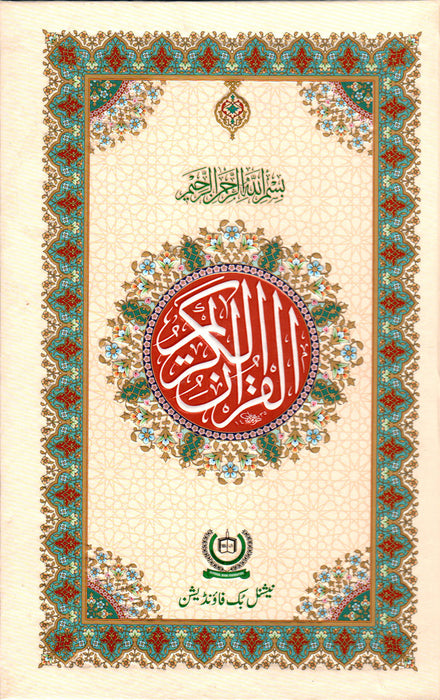 بِسْمِ اللهِ الرَّحْمٰنِ الرَّحِيْمِ
القرآن الكريم
نیشنل بُک فاؤنڈیشن